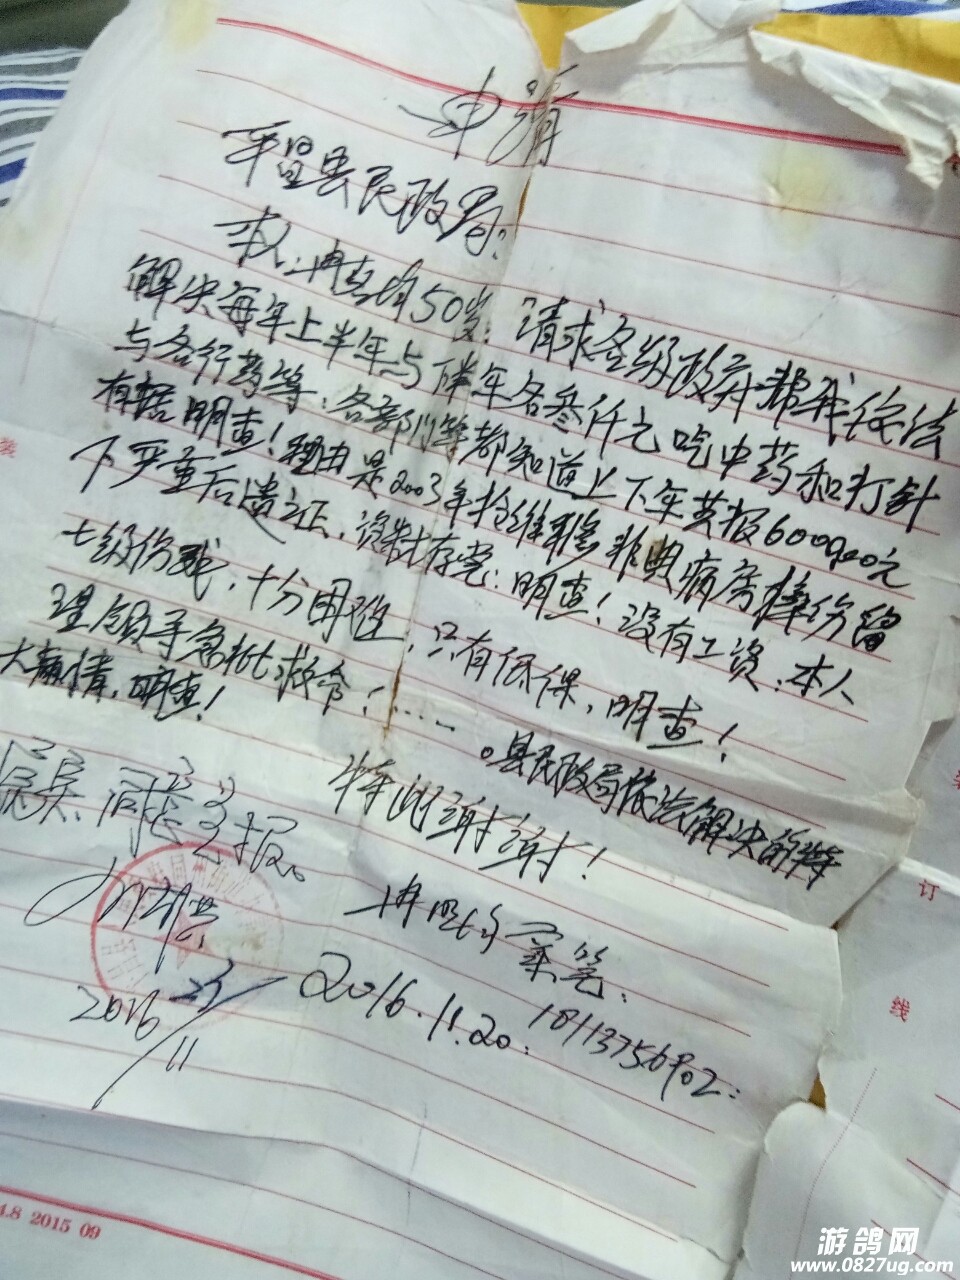 申请
平昌县民政局:
本人:冉 50岁:请求各级政府帮我依法
解决每年上半年与 年各叁仟元吃中药和打针
与各行药等、各部门等都知道上下年共报6000.00元
有据明查!理由是2003年抢维修非典病房摔伤留
下严重后遗之证,资料存党:明查!没有工资:本人
七级伤残,十分困难,只有低保,明查!
理领导急批救命!……。县民政局依法解决的特
大 情,明查!
特此谢谢!
冉 亲笔:
2016.11.20:
属实,同意上报。
2016 23/11
装
订
线
4.8 2015 09
游鸽网
www.0827ug.com